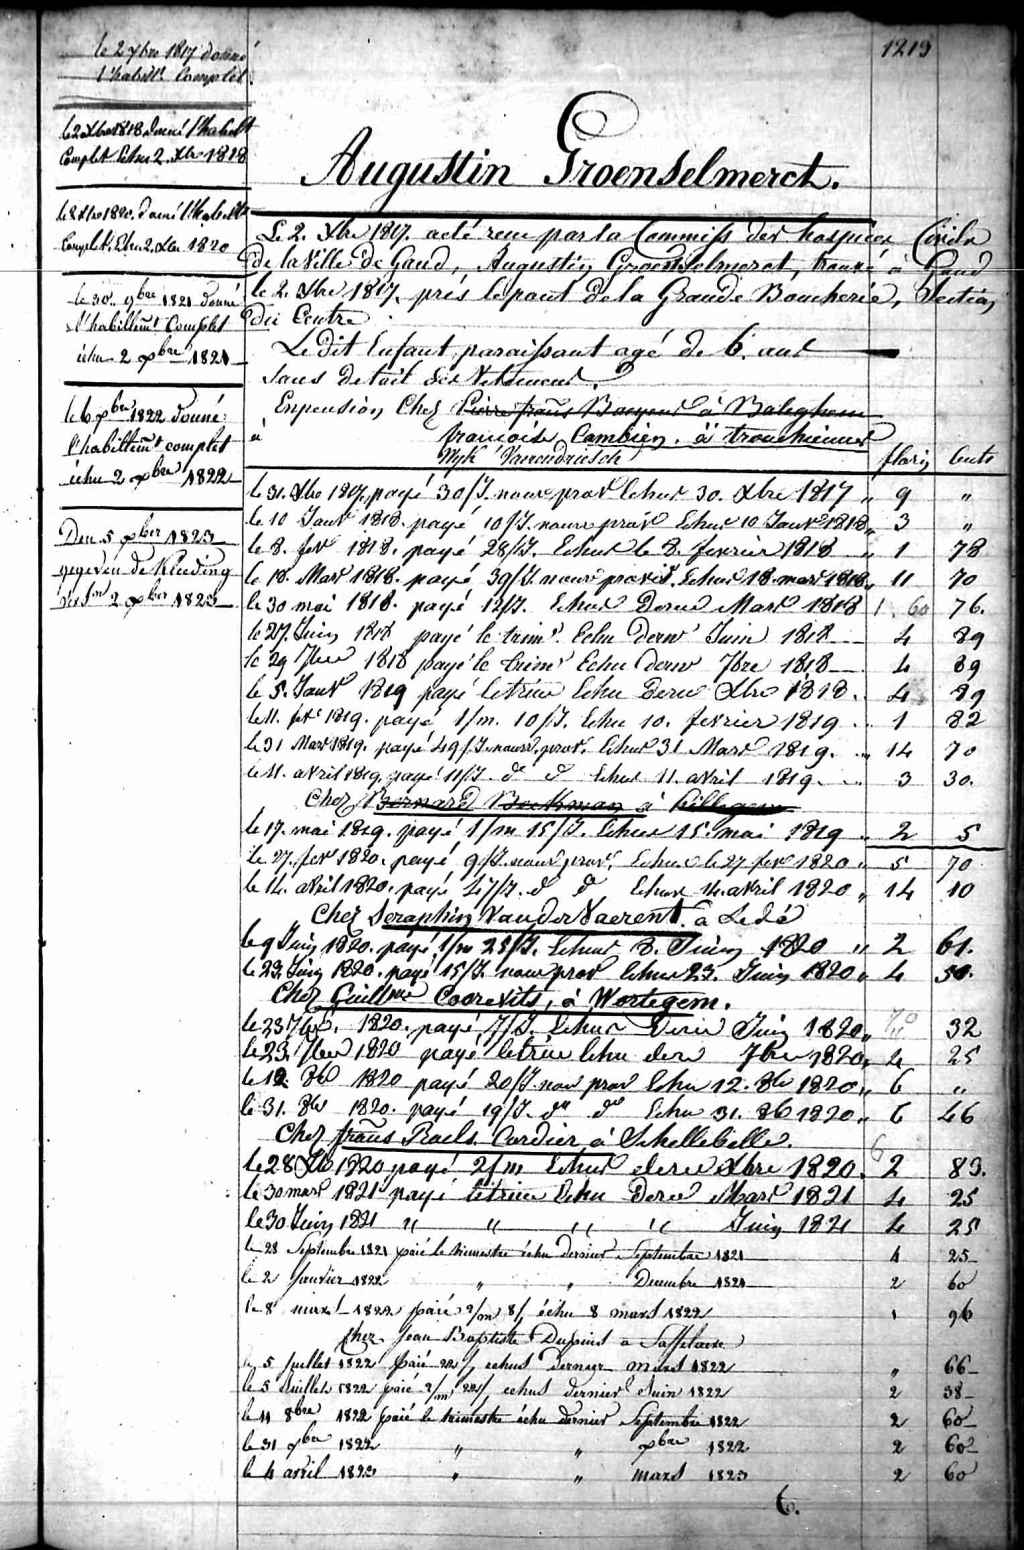 1213
le 2 xbre 1817 donné
l'habillt. Complet.
le 2 Xbre 1818 donné l'habillt
Complet Echu 2. Xbre 1818
le 8 Xbre 1820. donné l'habillt
Complet. Echu 2. Xbre 1820
le 30. 9bre 1821 donné
l'habillemt Complet
échu 2 xbre 1821
le 6 xbre 1822 donné
l'habillemt complet
échu 2 xbre 1822
Den 5 xber 1823
gegeven de Kleeding
2 xber 1823
Augustin Groenselmerct.
Le 2. Xbre 1817. acté reçu par la Commiss des hospices Civils
de la Ville de Gand, Augustin Groenselmerct, trouvé à Gand
le 2. Xbre 1817. près le pont de la Grande Boucherie, Section
du Centre.
Le dit Enfant paraissant agé de 6. ans
Sans detail des Vetemens.
En pension Chez Pierre frans à Baleghem
à françoise Cambien. à tronchiennes
Wyk Varendriesch
florin Cents
le 31. Xbre 1817. payé 30/J. nour prov Echus 30. Xbre 1817 " 9 "
le 10 Janv 1818. payé 10/J. nour prov Echus 10 Janv 1818 " 3 "
le 8. fev 1818. payé 28/J. Echus le 8. fevrier 1818 " 1 78
le 18. Mars 1818. payé 39/J. nour provis. Echus 18. mars 1818 " 11 70
le 30 mai 1818. payé 12/J. Echus Dern Mars 1818 1. 60 76.
le 27. Juin 1818 payé le trim. Echu dern Juin 1818 4 89
le 29 7bre 1818 payé le trim Echu dern 7bre 1818 4 89
le 5. Janv 1819 payé le trim Echu Dern Xbre 1818. 4 89
le 11. fevr 1819. payé 1/m. 10/J. Echu 10. fevrier 1819 1 82
le 31 Mars 1819. payé 49/J. nour. prov. Echus 31 Mars 1819. 14 70
le 11. avril 1819. payé 11/J. do do Echus 11. avril 1819. 3 30.
Chez Bernard Beekman à Cillegem
le 17. mai 1819. payé 1/m 15/J. Echus 15. mai 1819 " 2 5
le 27. fevr 1820. payé 9/J. nour prov. Echus le 27 fevr 1820 " 5 70
le 14. avril 1820. payé 47/J. do do Echus 14. avril 1820 " 14 10
Chez Seraphin Vander Vaerent. à Lede
le 9 Juin 1820. payé 1/m 28/J. Echus 8. Juin 1820 " 2 61.
le 23. Juin 1820. payé 15/J. nour prov Echus 23. Juin 1820 " 4 50.
Chez Guillme Coorevits, à Wortegem.
le 23 7bre. 1820. payé 7/J. Echus Dern Juin 1820 " 32
le 23. 7bre 1820 payé le trim Echu dern 7bre 1820 " 4 25
le 12. 8b 1820 payé 20/J. nour prov Echu 12. 8b 1820 " 6 "
le 31. 8b 1820. payé 19/J. do do Echu 31. 8b 1820 " 6 46
Chez frans Raels. Cordier à Schellebelle.
le 28 Xb 1820 payé 2/m Echus dern Xbre 1820. 2 83.
le 30 mars 1821 payé le trim Echu Dern Mars 1821 4 25
le 30 Juin 1821 " " " " Juin 1821 4 25
le 28 Septembre 1821 paié le trimestre échu dernier Septembre 1821 4 25
le 2 Janvier 1822 " " Decembre 1821 2 60
le 8 mars 1822 paié 2/m 8/J échu 8 mars 1822 1 96
Chez Jean Baptiste Dupuis à Saffelaere
le 5 Juillet 1822 paié 22/J echus dernier mars 1822 " 66
le 5 Juillet 1822 paié 2/m 22/J echus dernier Juin 1822 2 38
le 11 8bre 1822 paié le trimestre échu dernier Septembre 1822 2 60
le 31 xbre 1822 " " xbre 1822 2 60
le 4 avril 1823 " " mars 1823 2 60
6.